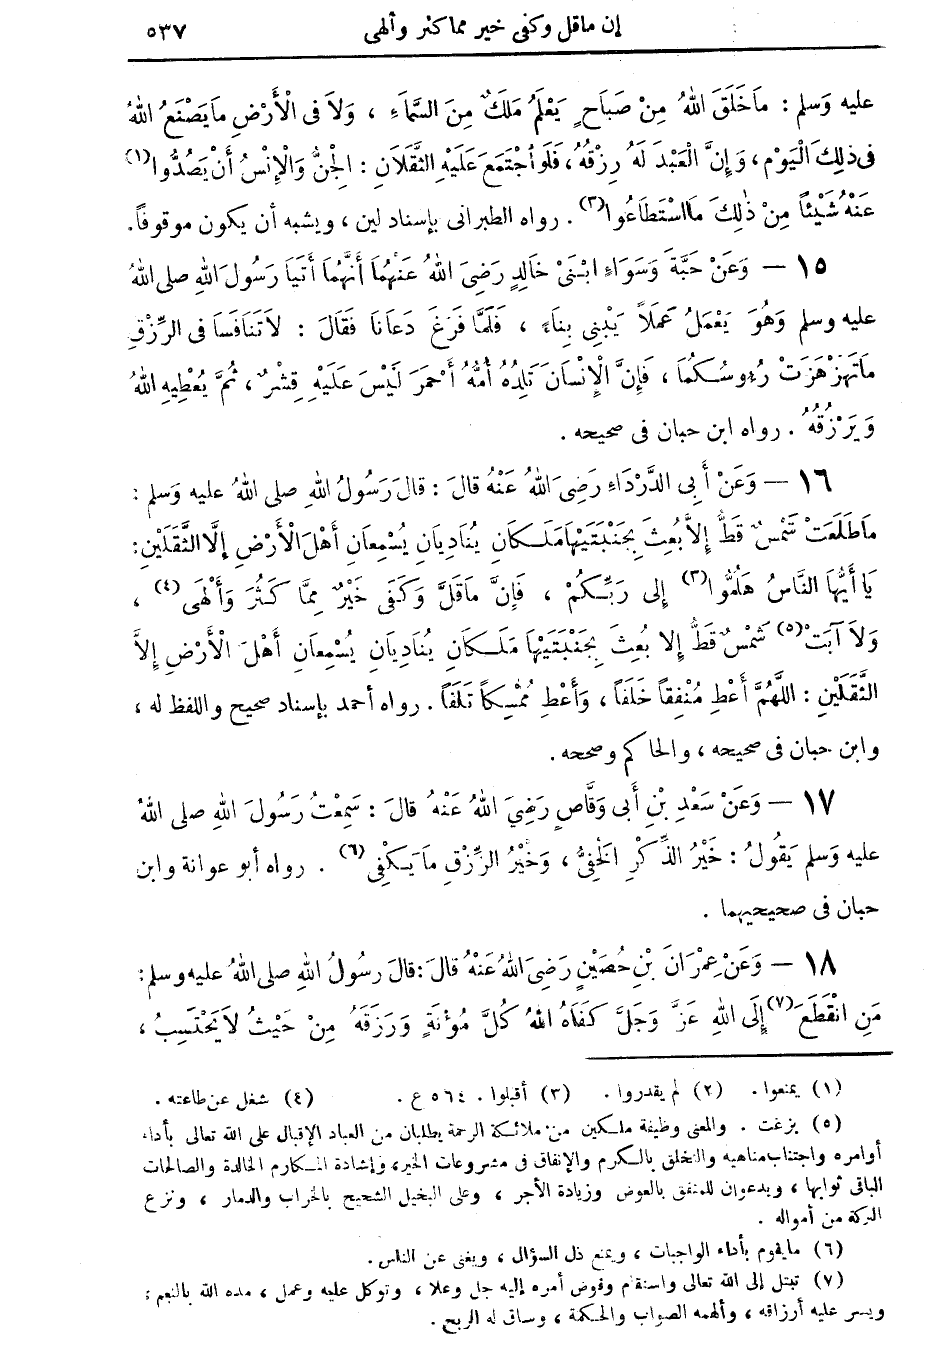 إن ماقل وكفى خير مما كثر وألهى ٥٣٧
عليه وَسلم : مَاخَلَقَ اللهُ مِنْ صَبَاحٍ يَعْلَمُ مَلَكٌ مِنَ السَّمَاءِ ، وَلاَ فى الْأَرْضِ مَايَصْنَعُ اللهُ
فى ذلِكَ الْيَوْمِ ، وَإِنَّ الْعَبْدَ لَهُ رِزْقُهُ ، فَلَوِ اُجْتَمَعَ عَلَيْهِ الثَّقَلَانِ : الْجِنُّ وَالْإِنْسُ أَنْ يَصُدُّوا (١)
عَنْهُ شَيْئًا مِنْ ذٰلِكَ مَااسْتَطَاعُوا (٣) . رواه الطبرانى بإسناد لين ، ويشبه أن يكون موقوفاً.
١٥ — وَعَنْ حَبَّةَ وَسَوَاءِ ابْنَىْ خَالِدٍ رَضِىَ اللهُ عَنْهُمَا أَنَّهُمَا أَتَيَا رَسُولَ اللهِ صلى اللهُ
عليه وسلم وَهُوَ يَعْمَلُ عَمَلاً يَبْنِى بِنَاءً ، فَلَمَّا فَرَغَ دَعَانَا فَقَالَ : لاَتَنَافَسَا فى الرِّزْقِ
مَاتَهَزْهَزَتْ رُءُوسُكُمَا ، فَإِنَّ الْإِنْسَانَ تَلِدُهُ أُمُّهُ أَحْمَرَ لَيْسَ عَلَيْهِ قِشْرٌ ، ثُمَّ يُعْطِيهِ اللهُ
وَيَرْزُقُهُ . رواه ابن حبان فى صحيحه .
١٦ — وَعَنْ أَبِى الدَّرْدَاءِ رَضِىَ اللهُ عَنْهُ قالَ : قالَ رَسُولُ اللهِ صلى اللهُ عليه وَسلم :
مَاطَلَعَتْ شَمْسٌ قَطُّ إِلاَّ بُعِثَ بِجَنْبَتَيْهَا مَلَكَانِ يُنَادِيَانِ يُسْمِعَانِ أَهْلَ الْأَرْضِ إِلَّا الثَّقَلَيْنِ :
يَا أَيُّهَا النَّاسُ هَلُمُّوا (٣) إِلى رَبِّكُمْ ، فَإِنَّ مَاقَلَّ وَكَفَى خَيْرٌ مِمَّا كَثُرَ وَأَلْهَى (٤) ،
وَلاَ آبَتْ (٥) شَمْسٌ قَطُّ إِلا بُعِثَ بِجَنْبَتَيْهَا مَلَكَانِ يُنَادِيَانِ يُسْمِعَانِ أَهْلَ الْأَرْضِ إِلاَّ
الثَّقَلَيْنِ : اللَّهُمَّ أَعْطِ مُنْفِقاً خَلَفاً ، وَأَعْطِ مُمْسِكاً تَلَفاً . رواه أحمد بإسناد صحيح واللفظ له ،
وابن حبان فى صحيحه ، والحاكم وصححه .
١٧ — وَعَنْ سَعْدِ بْنِ أَبى وَقَّاصٍ رَضِيَ اللهُ عَنْهُ قالَ : سَمِعْتُ رَسُولَ اللهِ صلى اللهُ
عليه وَسلم يَقُولُ : خَيْرُ الذِّكْرِ الْخَفِىُّ ، وَخَيْرُ الرِّزْقِ مَايَكْفِى (٦) . رواه أبو عوانة وابن
حبان فى صحيحيهما .
١٨ — وَعَنْ عِمْرَانَ بْنِ حُصَيْنٍ رَضِىَ اللهُ عَنْهُ قالَ : قالَ رسُولُ اللهِ صلى اللهُ عليه وسلم :
مَنِ انْقَطَعَ (٧) إِلَى اللهِ عَزَّ وَجَلَّ كَفَاهُ اللهُ كُلَّ مُؤْنَةٍ وَرَزَقَهُ مِنْ حَيْثُ لاَيَحْتَسِبُ ،
(١) يمنعوا . (٢) لم يقدروا . (٣) أقبلوا . ٥٦٤ ع . (٤) شغل عن طاعته .
(٥) بزغت . والمعنى وظيفة ملكين من ملائكة الرحمة يطلبان من العباد الإقبال على الله تعالى بأداء
أوامره واجتناب مناهيه والتخلق بالكرم والإنفاق فى مشروعات الخير، وإشادة المكارم الخالدة والصالحات
الباقى ثوابها ، ويدعوان للمنفق بالعوض وزيادة الأجر ، وعلى البخيل الشحيح بالخراب والدمار ، ونزع
البركة من أمواله .
(٦) مايقوم بأداء الواجبات ، ويمنع ذل السؤال ، ويغنى عن الناس .
(٧) تبتل إلى الله تعالى واستقام وفوض أمره إليه جل وعلا ، وتوكل عليه وعمل ، مده الله بالنعم ؛
ويسر عليه أرزاقه ، وألهمه الصواب والحكمة ، وساق له الربح .